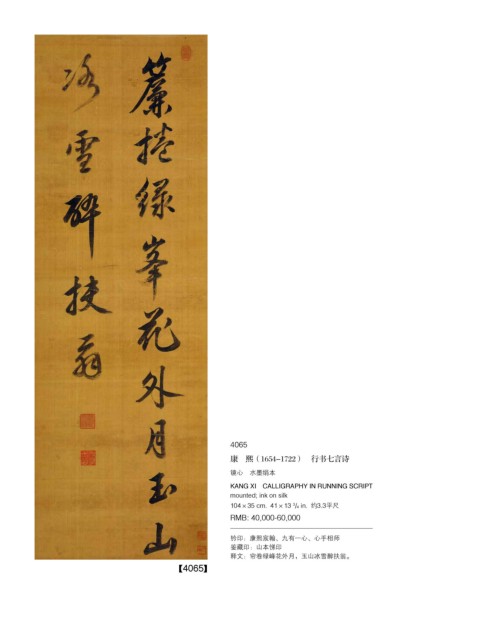 簾捲綠峯花外月玉山
冰雪醉扶翁
【4065】
4065
康　熙（1654-1722）　行书七言诗
镜心　水墨绢本
KANG XI　CALLIGRAPHY IN RUNNING SCRIPT
mounted; ink on silk
104×35 cm.  41×13 3/4 in.  约3.3平尺
RMB: 40,000-60,000
钤印：康熙宸翰、九有一心、心手相师
鉴藏印：山本悌印
释文：帘卷绿峰花外月，玉山冰雪醉扶翁。